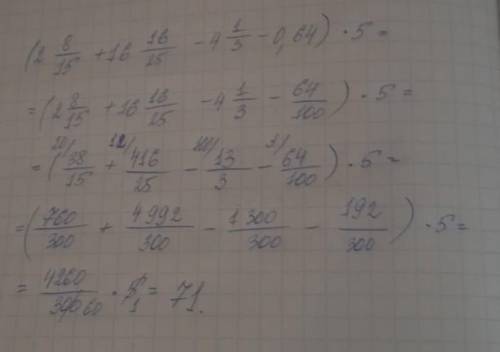 (2 8/15 + 16 16/25 - 4 1/3 - 0,64) · 5 =
= (2 8/15 + 16 16/25 - 4 1/3 - 64/100) · 5 =
= (20/ 38/15 + 12/ 416/25 - 100/ 13/3 - 3/ 64/100) · 5 =
= (760/300 + 4992/300 - 1300/300 - 192/300) · 5 =
= 4260/300 60 · 5 1 = 71.